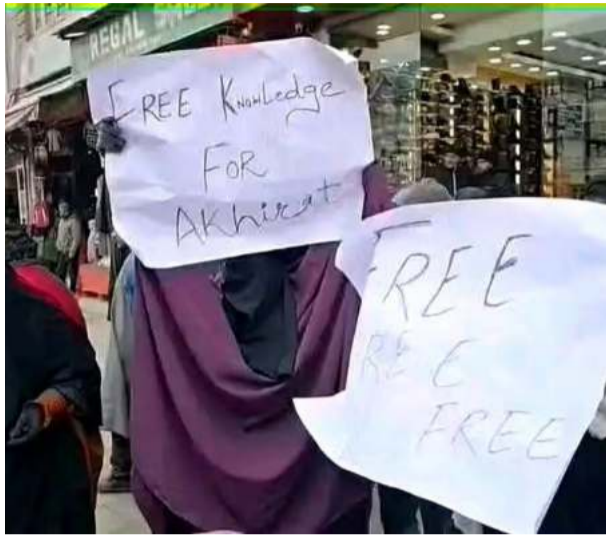 REGAL
FREE KNowLedge
FOR
AKhirat
FREE
REE
FREE